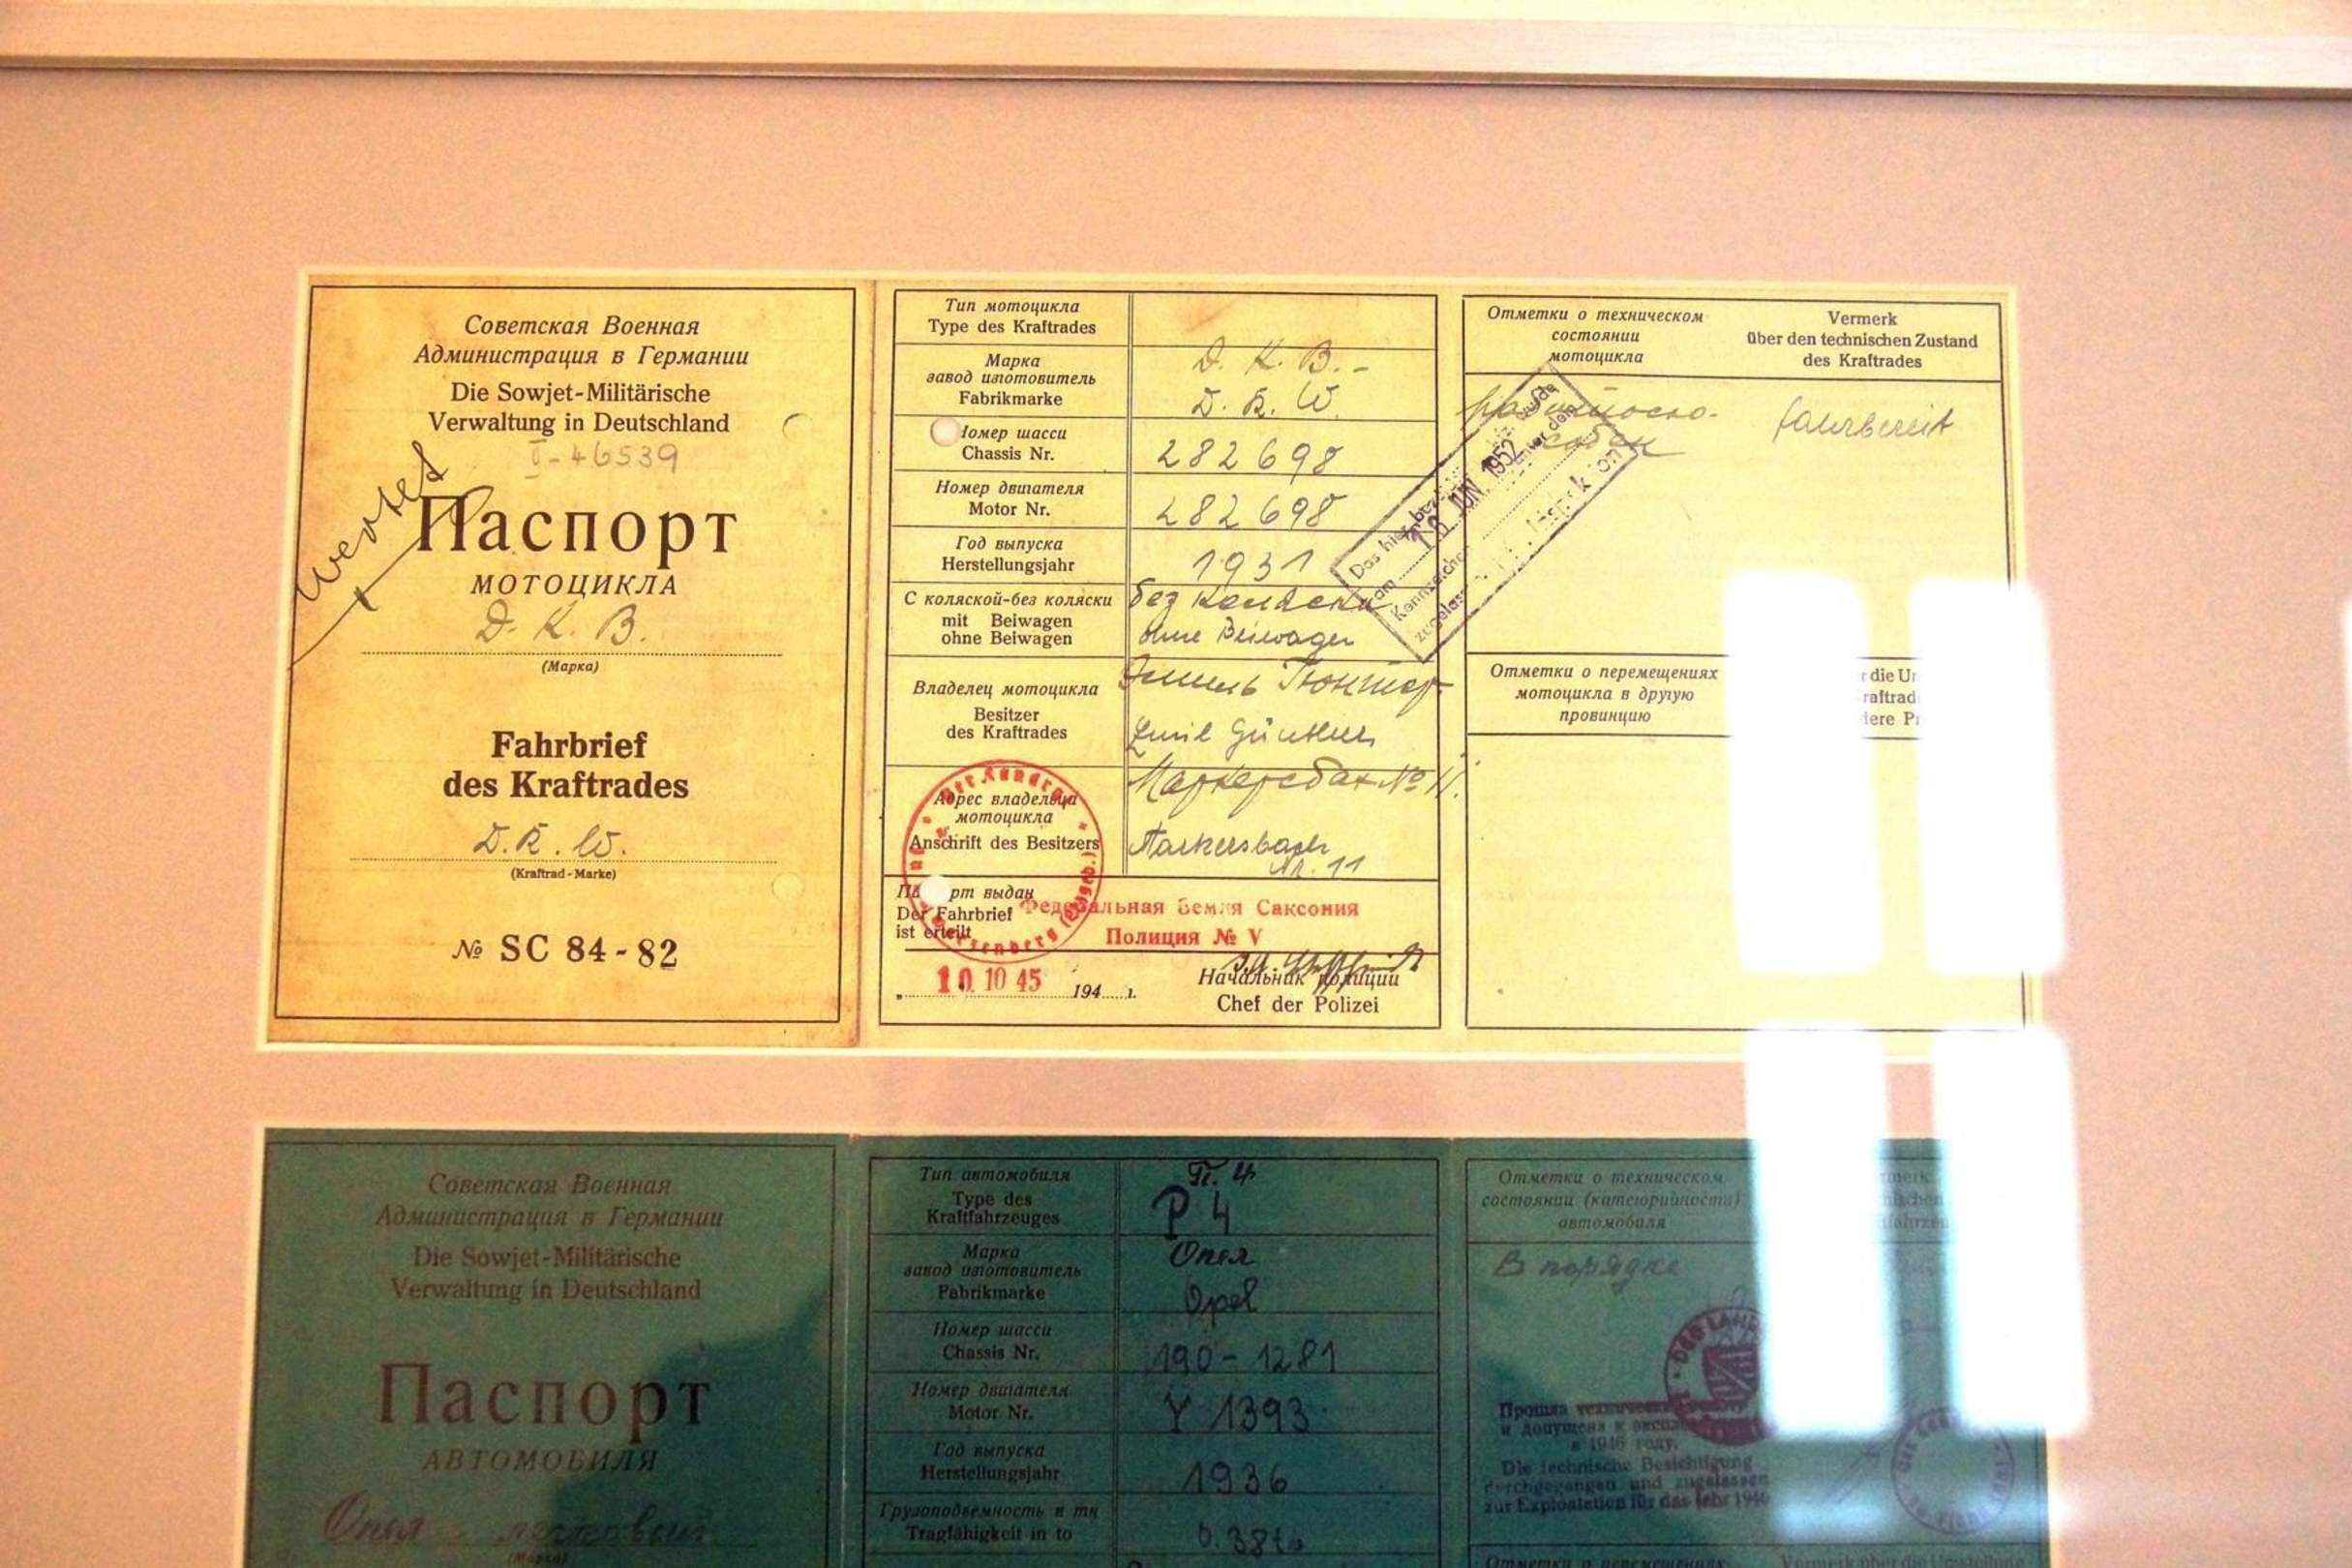 Советская Военная
Администрация в Германии
Die Sowjet-Militärische
Verwaltung in Deutschland
I-46539
Паспорт
МОТОЦИКЛА
Д. К. В.
(Марка)
Fahrbrief
des Kraftrades
D. K. W.
(Kraftrad-Marke)
№ SC 84-82
Тип мотоцикла
Type des Kraftrades
Марка
завод изготовитель
Fabrikmarke
Д. К. В. -
D. K. W.
Номер шасси
Chassis Nr.
282698
Номер двигателя
Motor Nr.
282698
Год выпуска
Herstellungsjahr
1931
С коляской-без коляски
mit Beiwagen
ohne Beiwagen
без коляски
ohne Beiwagen
Владелец мотоцикла
Besitzer
des Kraftrades
Эмиль Гюнтер
Emil Günther
Адрес владельца
мотоцикла
Anschrift des Besitzers
Маркерсбах № 11.
Markersbach
Nr. 11
выдан
Der Fahrbrief
ist erteilt
Федеральная Земля Саксония
Полиция № V
10. 10 45 194 г.
Начальник полиции
Chef der Polizei
Отметки о техническом
состоянии
мотоцикла
Vermerk
über den technischen Zustand
des Kraftrades
fahrbereit
Das
10. JUN 1952
am
Отметки о перемещениях
мотоцикла в другую
провинцию
die
Советская Военная
Администрация в Германии
Die Sowjet-Militärische
Verwaltung in Deutschland
Паспорт
АВТОМОБИЛЯ
Опел - легковый
(Марка)
Тип автомобиля
Type des
Kraftfahrzeuges
П. 4
P 4
Марка
завод изготовитель
Fabrikmarke
Опел
Opel
Номер шасси
Chassis Nr.
190-1281
Номер двигателя
Motor Nr.
Y 1393
Год выпуска
Herstellungsjahr
1936
Грузоподъемность в тн
Tragfähigkeit in to
0.38to
Отметки о техническом
состоянии (категорийности)
автомобиля
В порядке
Прошла
и допущена к
в 1946 году.
Die technische Besichtigung
durchgegangen und zugelassen
zur Exploatation für das Jahr 1946
Отметки о перемещениях
Vermerk über die Umstellung